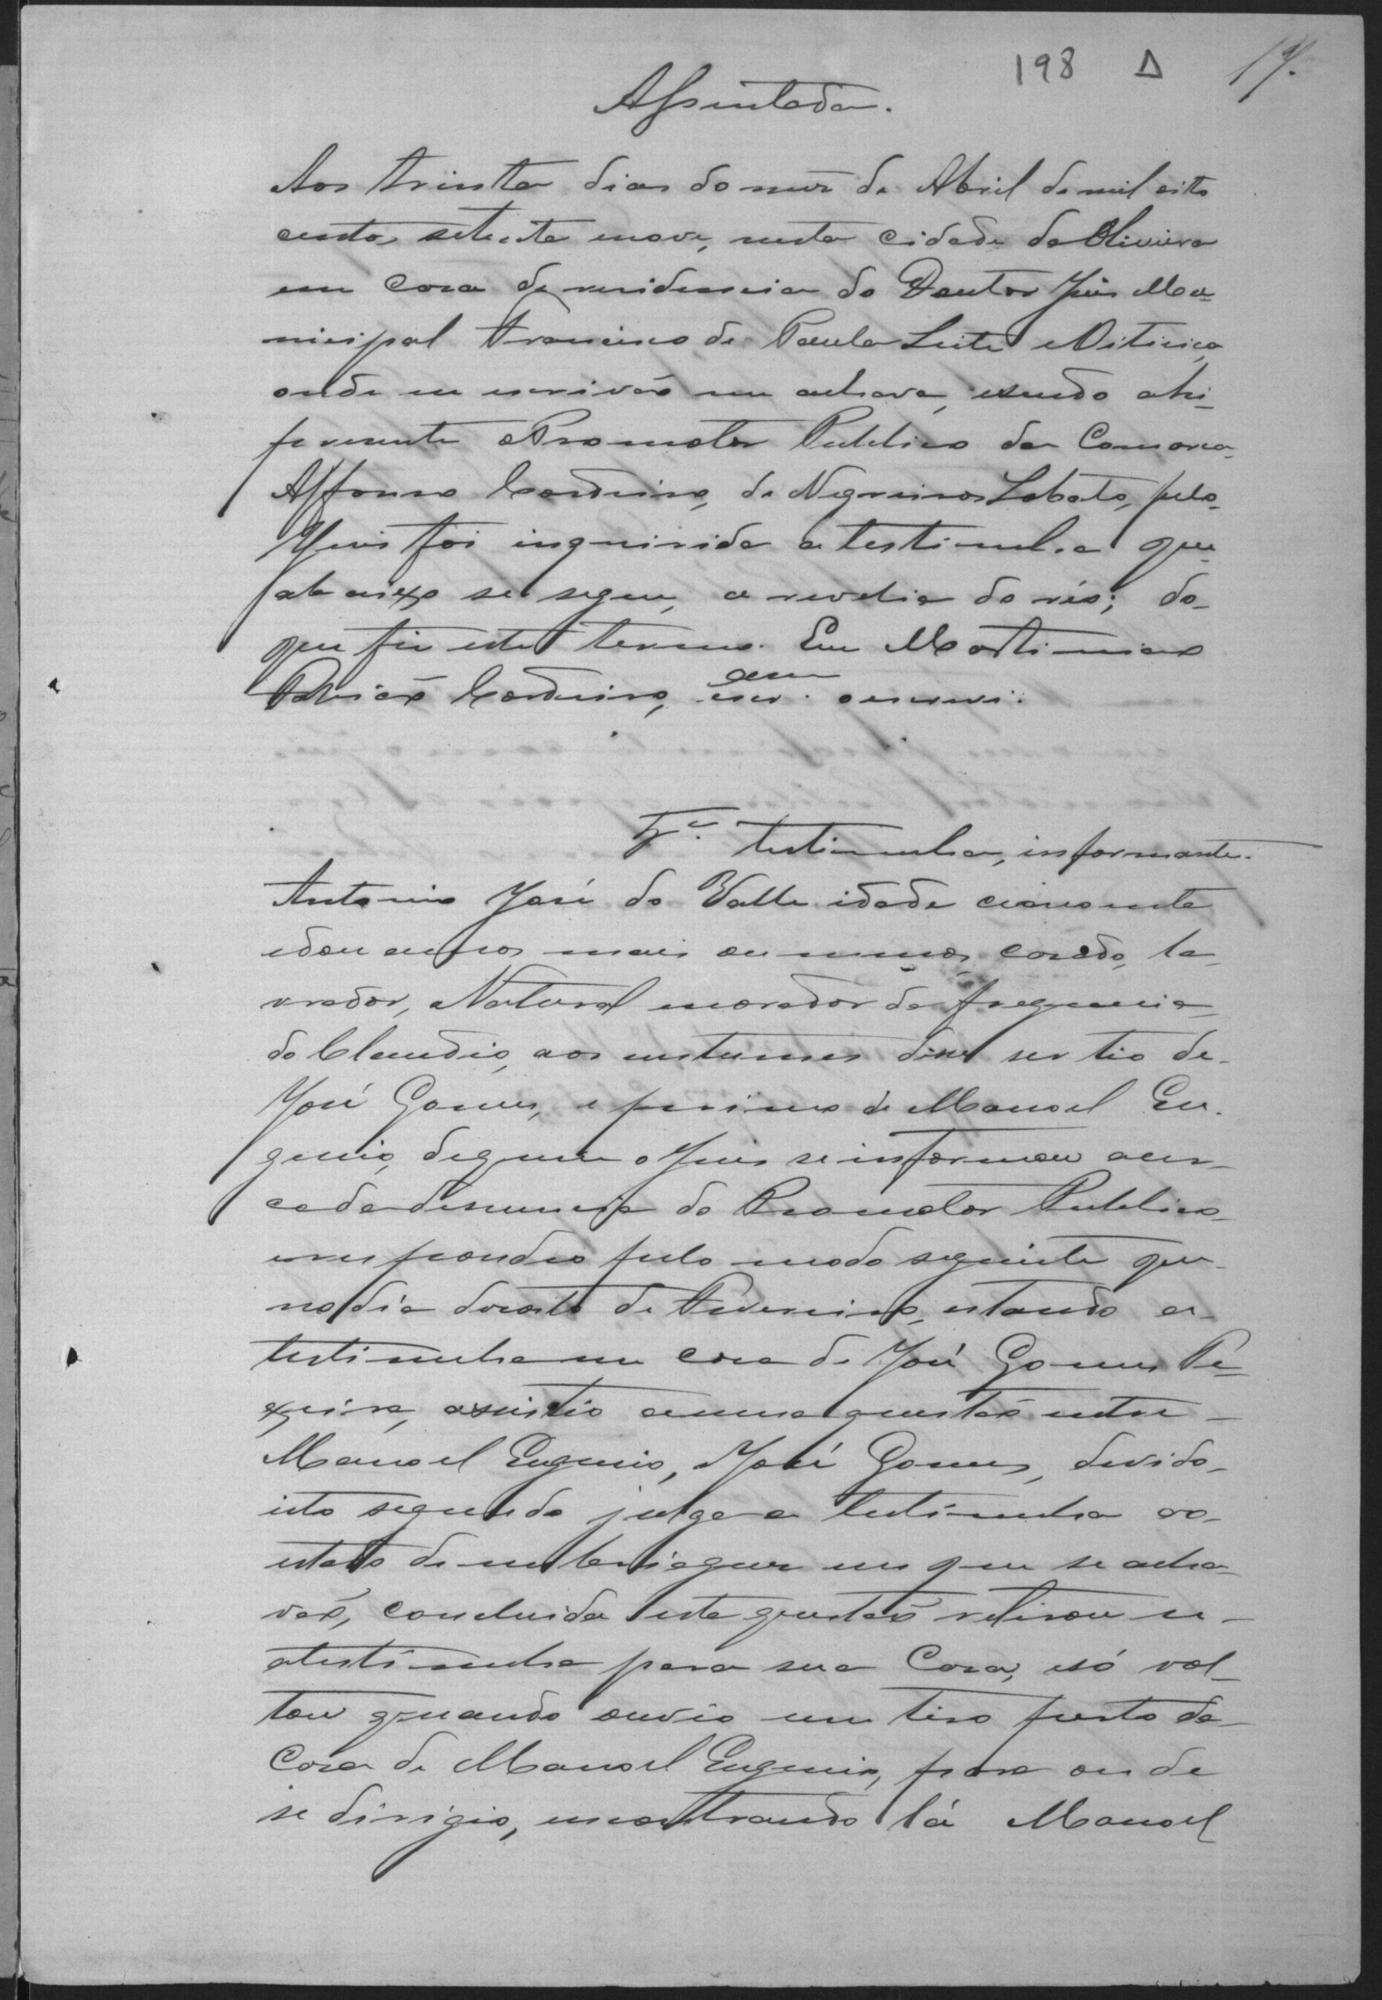 198 Δ 17.
Assentada.
Aos trinta dias do mez de Abril de mil oito
centos setenta enove, nesta cidade da Oliveira
em casa de residencia do Doutor Juis Mu-
nicipal Francisco de Paula Leite e Oiticica,
onde eu escrivão me achava, esendo ahi-
presente oPromotor Publico da Comarca
Affonso Cordeiro, de Negreiros Lobato, pelo-
Juis foi inquirida a testimunha que-
abaixo se segue, a revelia do réo; do-
que fis este termo. Eu Martiniano
Patricio Cordeiro, escr. oescrevi.
testimunha, informante.
Antonio José do Valle idade cincoenta
edou annos mais ou menos, casado, la-
vrador, Natural morador da freguesia
do Claudio, aos custumes disse ser tio de-
José Gomes, e primo de Manoel Eu-
genio, dequem o Juis se informou acer-
ca da denuncia do Promotor Publico
erespondeo pelo modo seguinte que-
no dia dosoito de Fevereiro, estando a-
testimunha em casa de José Gomes Pe-
xeira, assistio auma questão entre-
Manoel Eugenio, José Gomes, devido-
isto segundo julga a testimunha ao-
estado de embriaguez em que se acha-
vão, concluida esta questão retirou se-
atestimunha para sua Casa, esó vol-
tou quando ouvio um tiro perto da-
Casa de Manoel Eugenio, para onde
se dirigio, encontrando lá Manoel